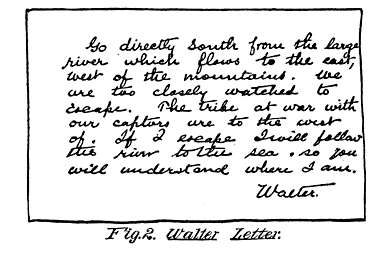 Go directly south from the large
river which flows to the east,
west of the mountains. We
are too closely watched to
escape. The tribe at war with
our captors are to the west
of. If I escape I will follow
the river to the sea. so you
will understand where I am.
Walter.
Fig. 2. Walter Letter.